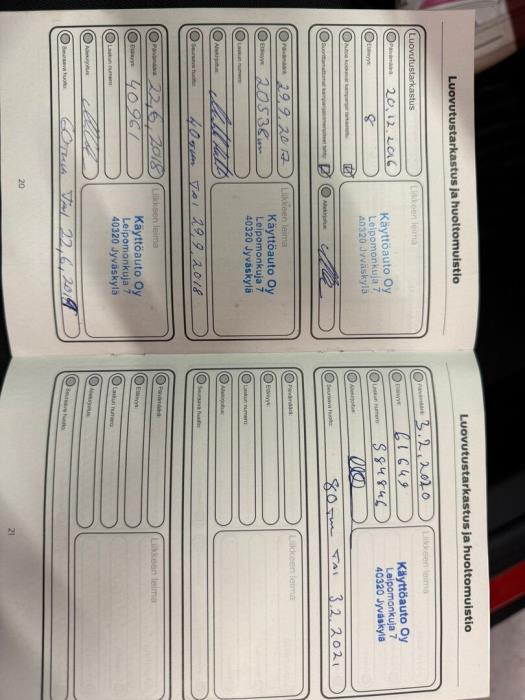 Luovutustarkastus ja huoltomuistio
Luovutustarkastus
Päivämäärä:
20.12.2016
Etäisyys:
8
Allekirjoitus:
Liikkeen leima
Käyttöauto Oy
Leipomonkuja 7
40320 Jyväskylä
Päivämäärä:
29.9.2017
Etäisyys:
20538km
Laskun numero:
Allekirjoitus:
Seuraava huolto:
40 tkm TAI 29.9.2018
Liikkeen leima
Käyttöauto Oy
Leipomonkuja 7
40320 Jyväskylä
Päivämäärä:
22.6.2018
Etäisyys:
40961
Laskun numero:
Allekirjoitus:
Seuraava huolto:
60 tkm TAI 22.6.2019
Liikkeen leima
Käyttöauto Oy
Leipomonkuja 7
40320 Jyväskylä
20
Luovutustarkastus ja huoltomuistio
Päivämäärä:
3.2.2020
Etäisyys:
61649
Laskun numero:
984846
Allekirjoitus:
Seuraava huolto:
80 tkm TAI 3.2.2021
Liikkeen leima
Käyttöauto Oy
Leipomonkuja 7
40320 Jyväskylä
Päivämäärä:
Etäisyys:
Laskun numero:
Allekirjoitus:
Seuraava huolto:
Liikkeen leima
Päivämäärä:
Etäisyys:
Laskun numero:
Allekirjoitus:
Seuraava huolto:
Liikkeen leima
21